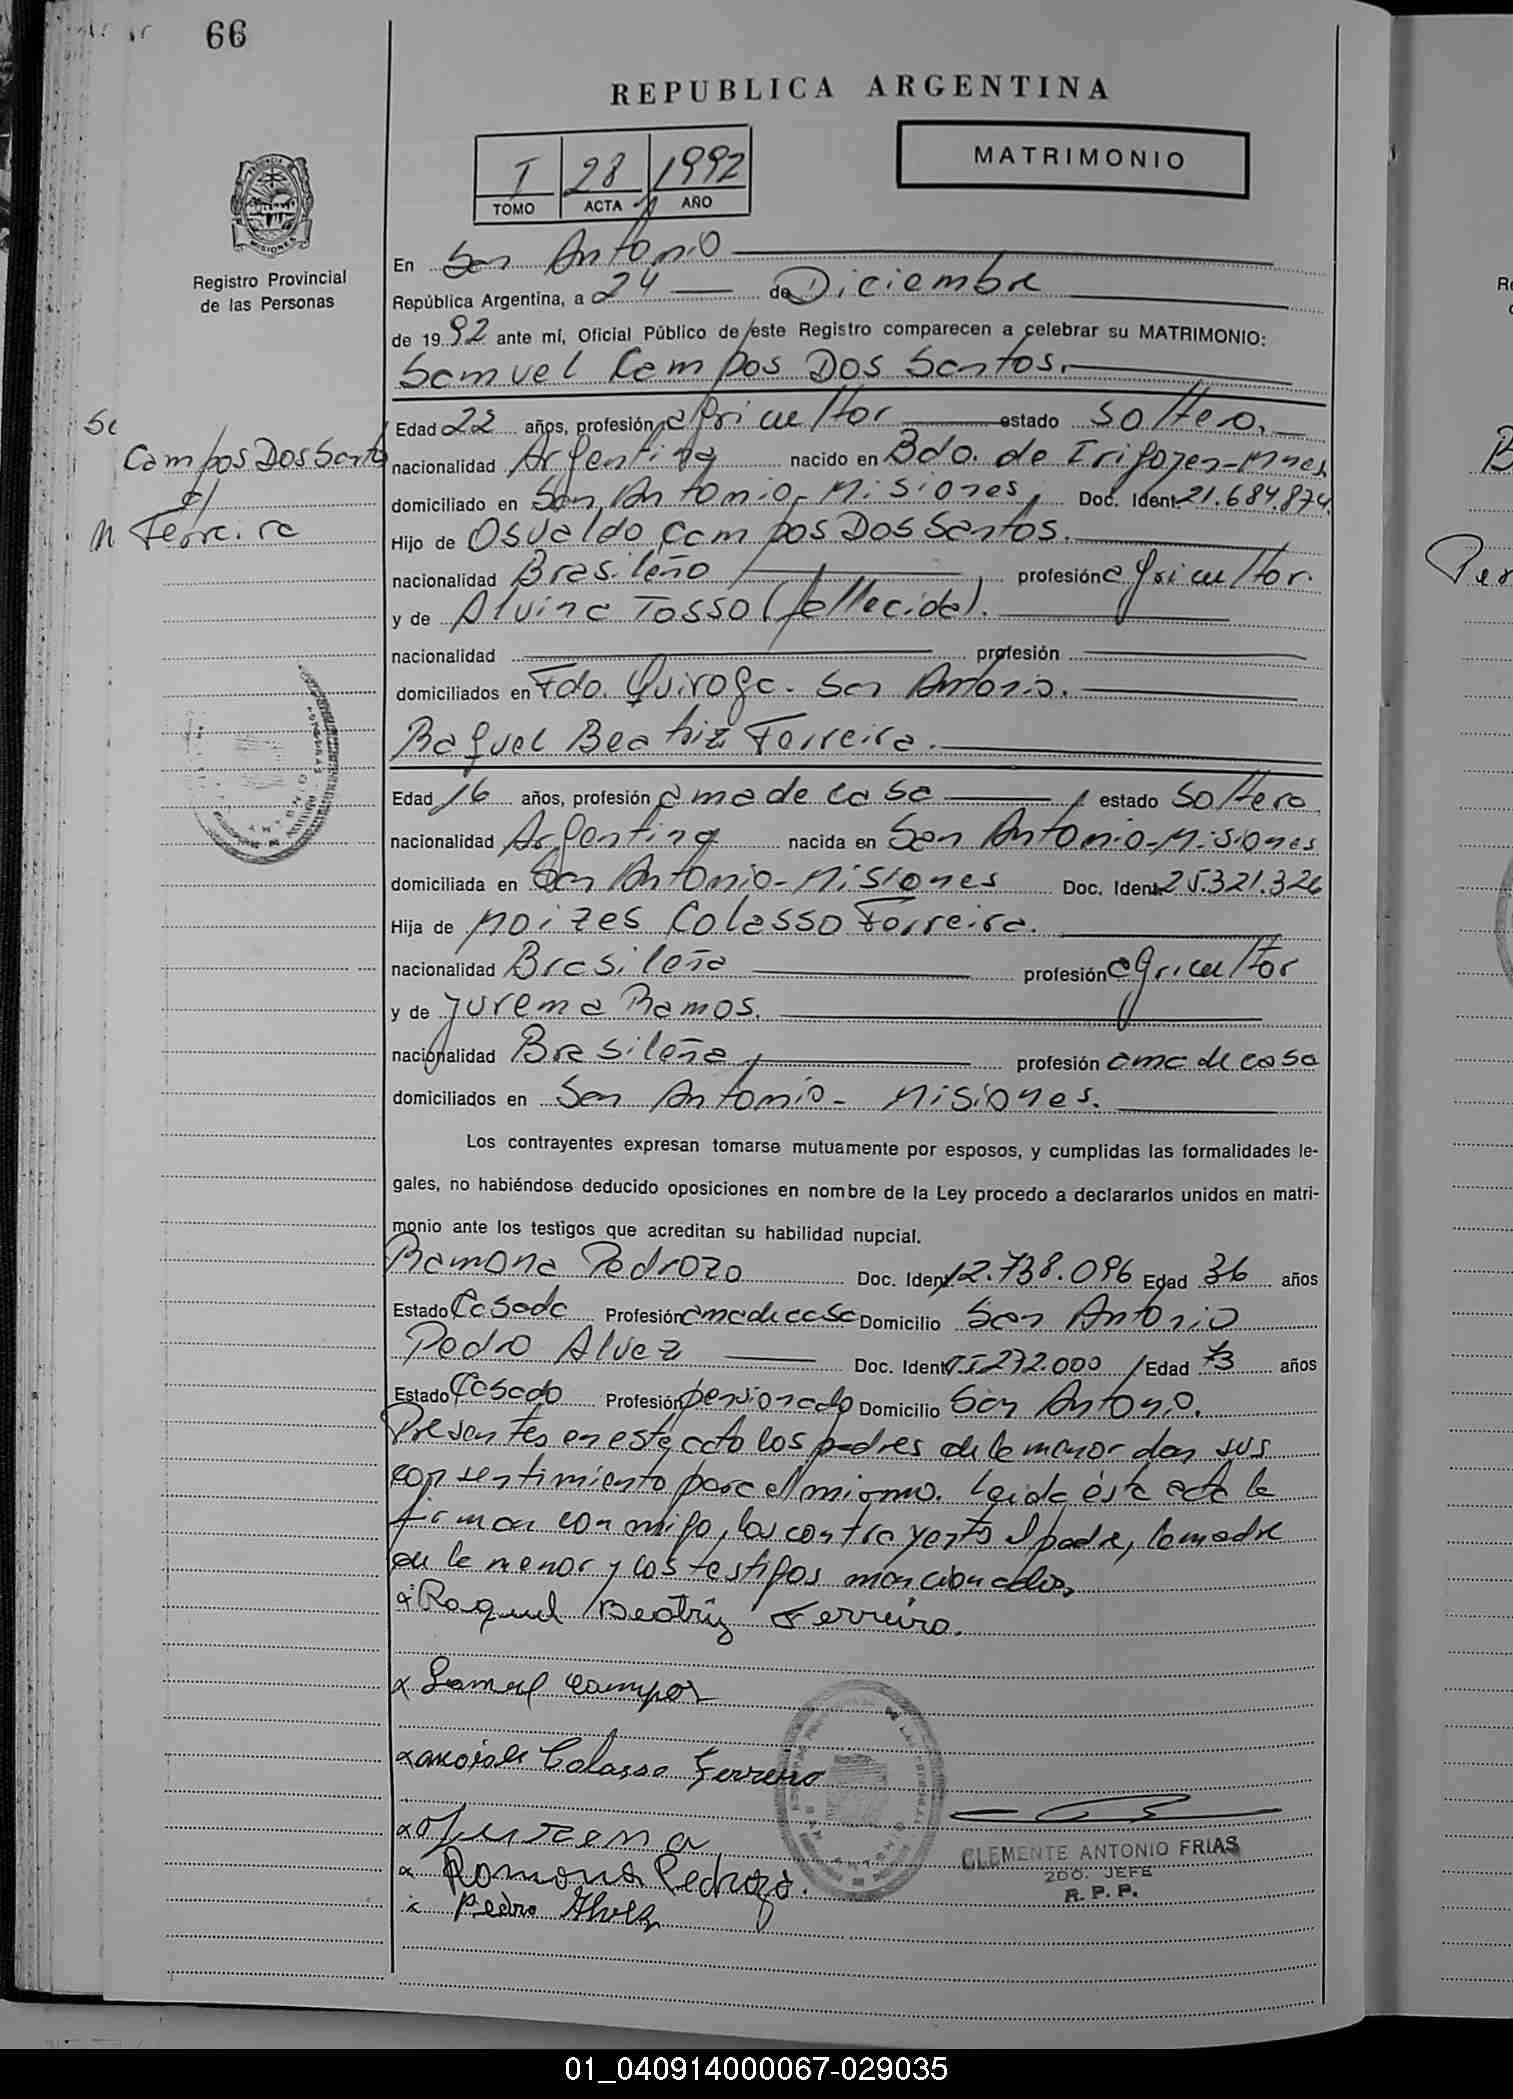 66
REPUBLICA ARGENTINA
MATRIMONIO
I 28 1992
TOMO ACTA AÑO
Registro Provincial
de las Personas
En San Antonio
República Argentina, a 24 de Diciembre
de 1992 ante mí, Oficial Público de este Registro comparecen a celebrar su MATRIMONIO:
Samuel Campos Dos Santos.
Edad 22 años, profesión agricultor estado soltero.
Campos Dos Santo
c/
Ferreira
nacionalidad Argentina nacido en Bdo. de Irigoyen-Mnes.
domiciliado en San Antonio-Misiones, Doc. Ident. 21.684.874.
Hijo de Osvaldo Campos Dos Santos.
nacionalidad Brasileño profesión agricultor.
y de Alvina Tosso (fallecida).
nacionalidad profesión
domiciliados en Fdo. Quiroga. San Antonio.
Raquel Beatriz Ferreira.
Edad 16 años, profesión ama de casa, estado soltera
nacionalidad Argentina nacida en San Antonio-Misiones
domiciliada en San Antonio-Misiones Doc. Ident. 25.321.326
Hija de Moizes Colasso Ferreira.
nacionalidad Brasileña profesión agricultor
y de Jurema Ramos.
nacionalidad Brasileña, profesión ama de casa
domiciliados en San Antonio- Misiones.
Los contrayentes expresan tomarse mutuamente por esposos, y cumplidas las formalidades le-
gales, no habiéndose deducido oposiciones en nombre de la Ley procedo a declararlos unidos en matri-
monio ante los testigos que acreditan su habilidad nupcial.
Ramona Pedrozo Doc. Ident. 12.738.096 Edad 36 años
Estado Casada Profesión ama de casa Domicilio San Antonio
Pedro Alvez Doc. Ident. 272.000 Edad 73 años
Estado Casado Profesión pensionado Domicilio San Antonio.
Presentes en este acto los padres de la menor dan sus
consentimiento para el mismo. Leida ésta acta la
firman conmigo, los contrayentes el padre, la madre
de la menor y los testigos mencionados,
Raquel Beatriz Ferreira.
Samuel Campos
Colasso Ferreira
Jurema
Ramona Pedrozo.
Pedro Alvez
CLEMENTE ANTONIO FRIAS
2DO. JEFE
R. P. P.
01_040914000067-029035